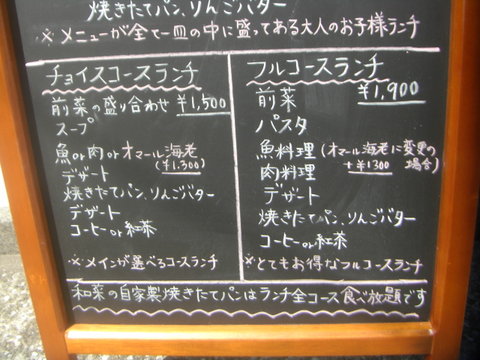 焼きたてパン、りんごバター
※メニューが全て一皿の中に盛ってある大人のお子様ランチ
チョイスコースランチ
前菜の盛り合わせ ¥1,500
スープ
魚or肉orオマール海老
(¥1,300)
デザート
焼きたてパン、りんごバター
デザート
コーヒーor紅茶
※メインが選べるコースランチ
フルコースランチ
¥1,900
前菜
パスタ
魚料理(オマール海老に変更の場合)
+¥1300
肉料理
デザート
焼きたてパン、りんごバター
コーヒーor紅茶
※とてもお得なフルコースランチ
和菜の自家製焼きたてパンはランチ全コース食べ放題です